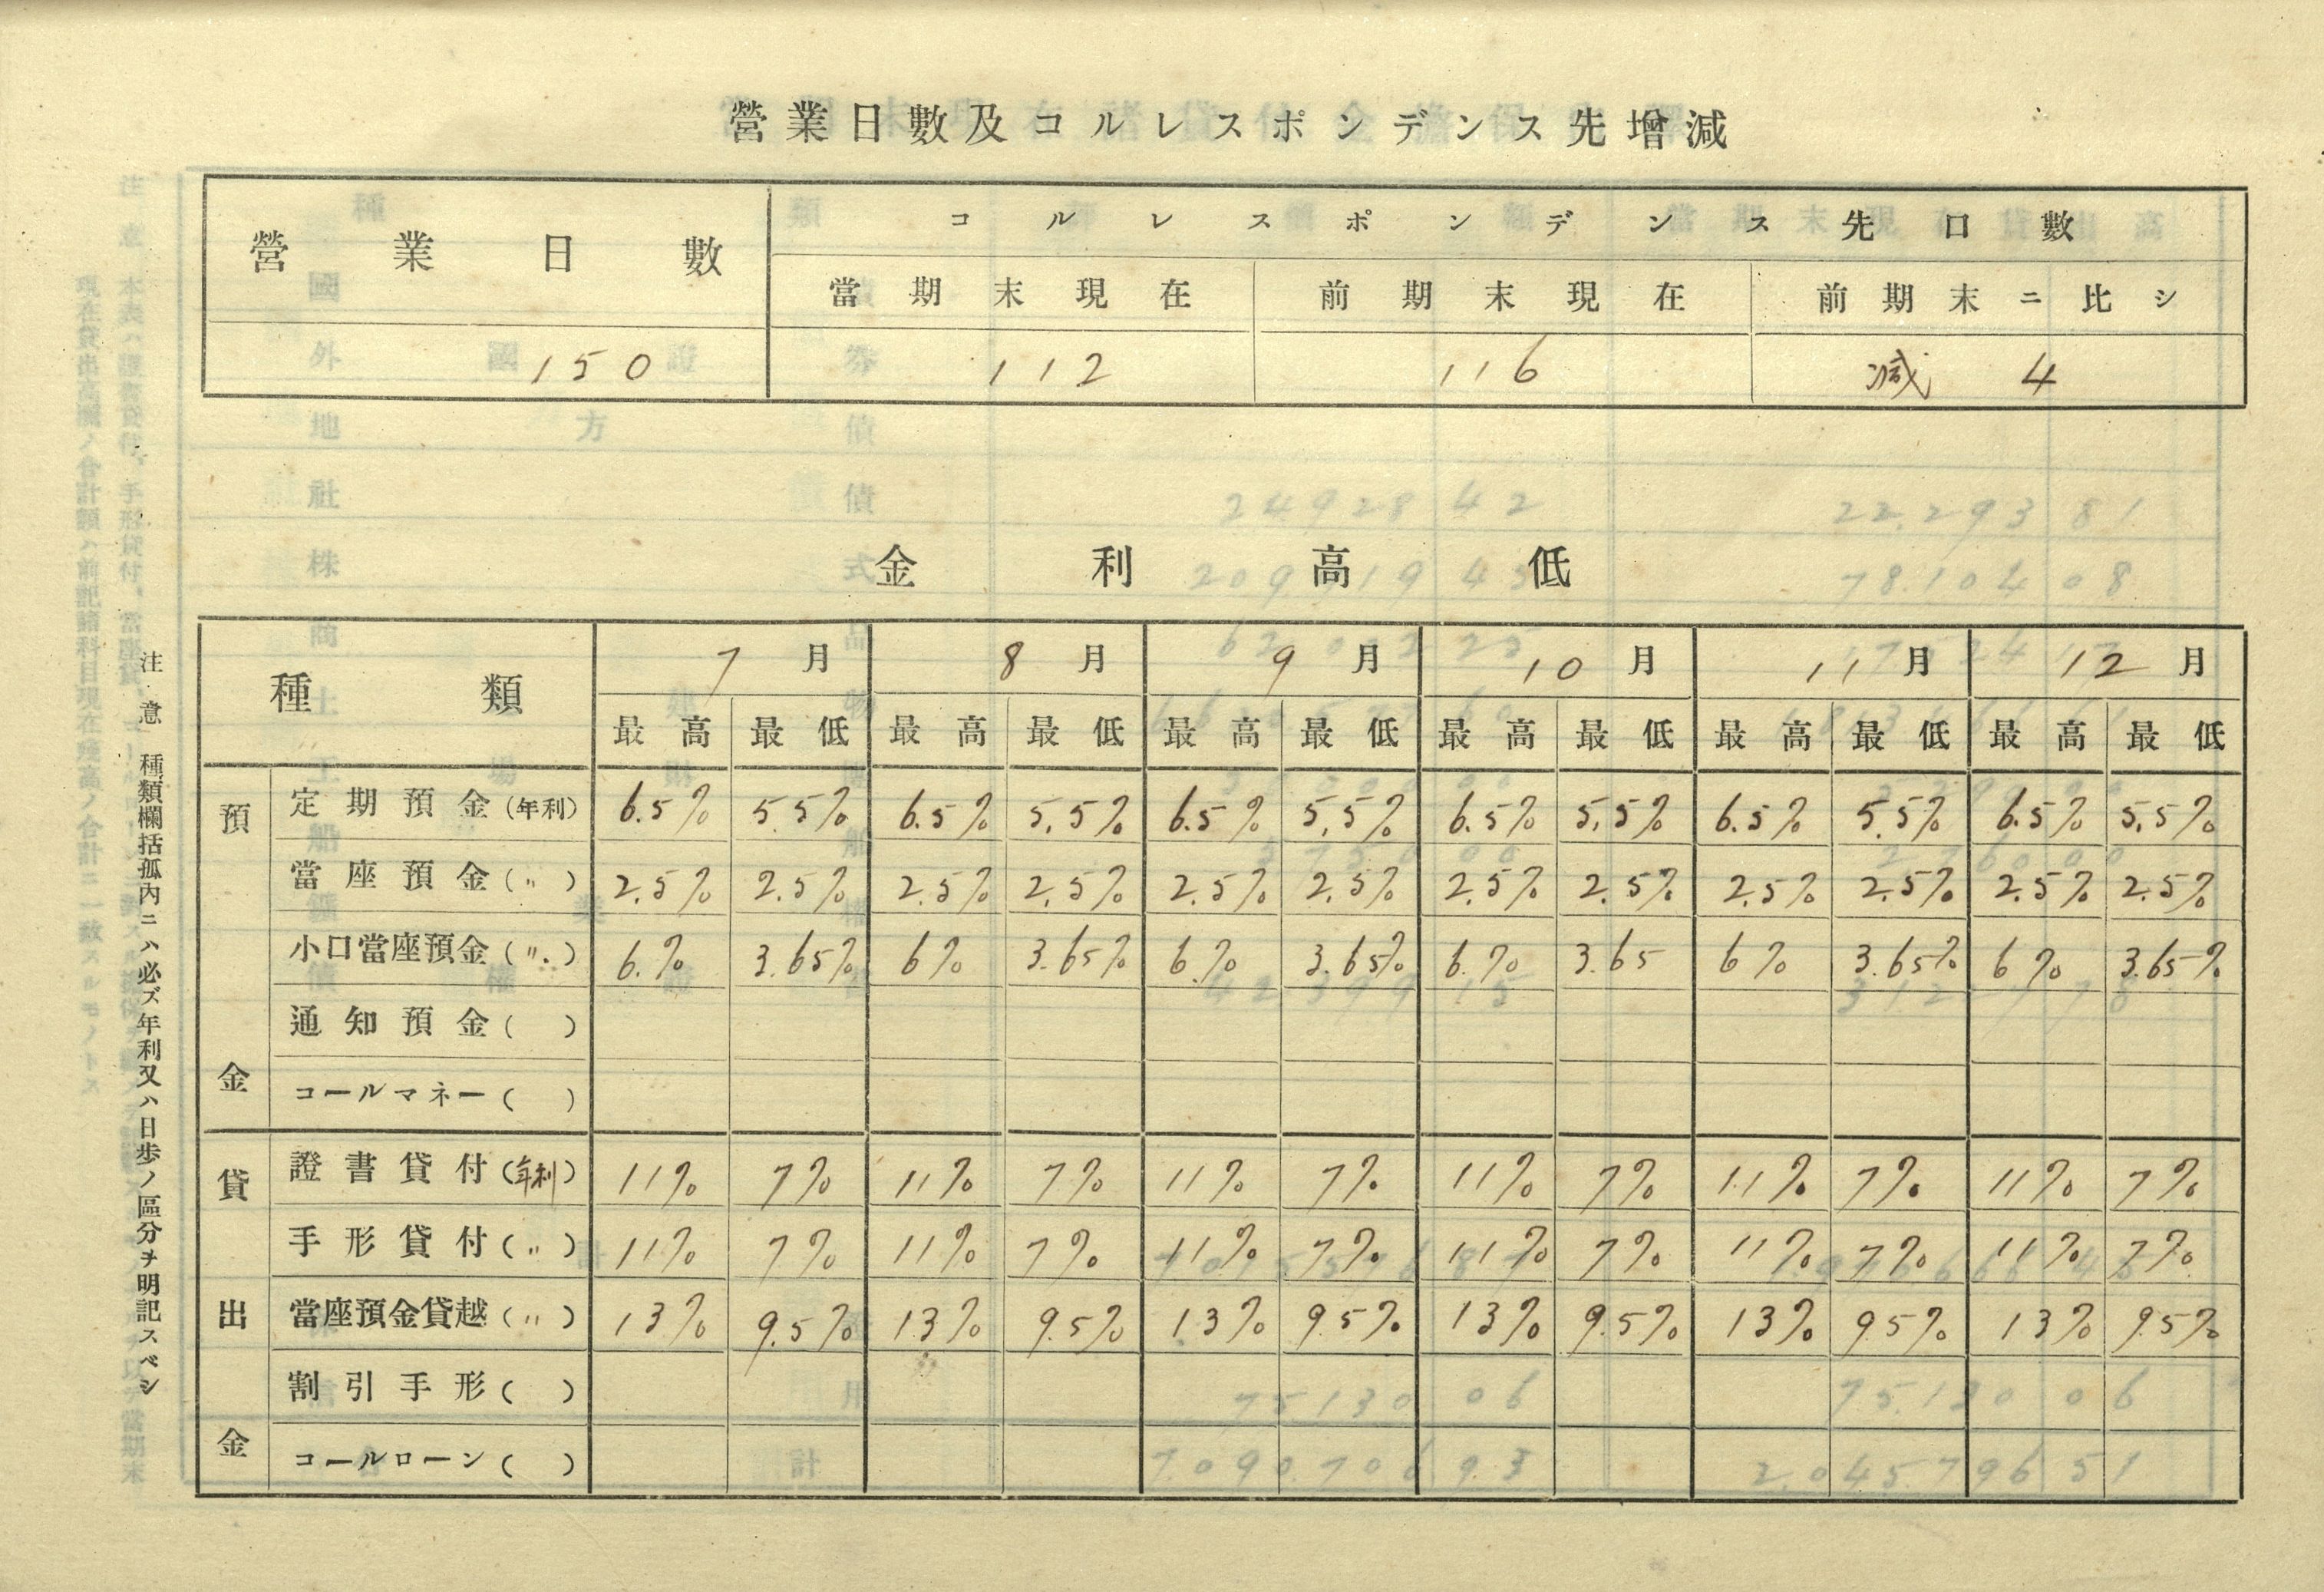 營業日數及コルレスポンデンス先增減
營業日數 コルレスポンデンス先口數
當期末現在 前期末現在 前期末ニ比シ
150 112 116 减 4
金利高低
種類 7月 8月 9月 10月 11月 12月
最高 最低 最高 最低 最高 最低 最高 最低 最高 最低 最高 最低
預金
定期預金(年利) 6.5% 5.5% 6.5% 5.5% 6.5% 5.5% 6.5% 5.5% 6.5% 5.5% 6.5% 5.5%
當座預金(〃) 2.5% 2.5% 2.5% 2.5% 2.5% 2.5% 2.5% 2.5% 2.5% 2.5% 2.5% 2.5%
小口當座預金(〃) 6.% 3.65% 6% 3.65% 6.% 3.65% 6.% 3.65 6% 3.65% 6% 3.65%
通知預金( )
コールマネー( )
貸出金
證書貸付(年利) 11% 7% 11% 7% 11% 7% 11% 7% 11% 7% 11% 7%
手形貸付(〃) 11% 7% 11% 7% 11% 7% 11% 7% 11% 7% 11% 7%
當座預金貸越(〃) 13% 9.5% 13% 9.5% 13% 9.5% 13% 9.5% 13% 9.5% 13% 9.5%
割引手形( )
コールローン( )
注意 種類欄括孤內ニハ必ズ年利又ハ日歩ノ區分ヲ明記スベシ